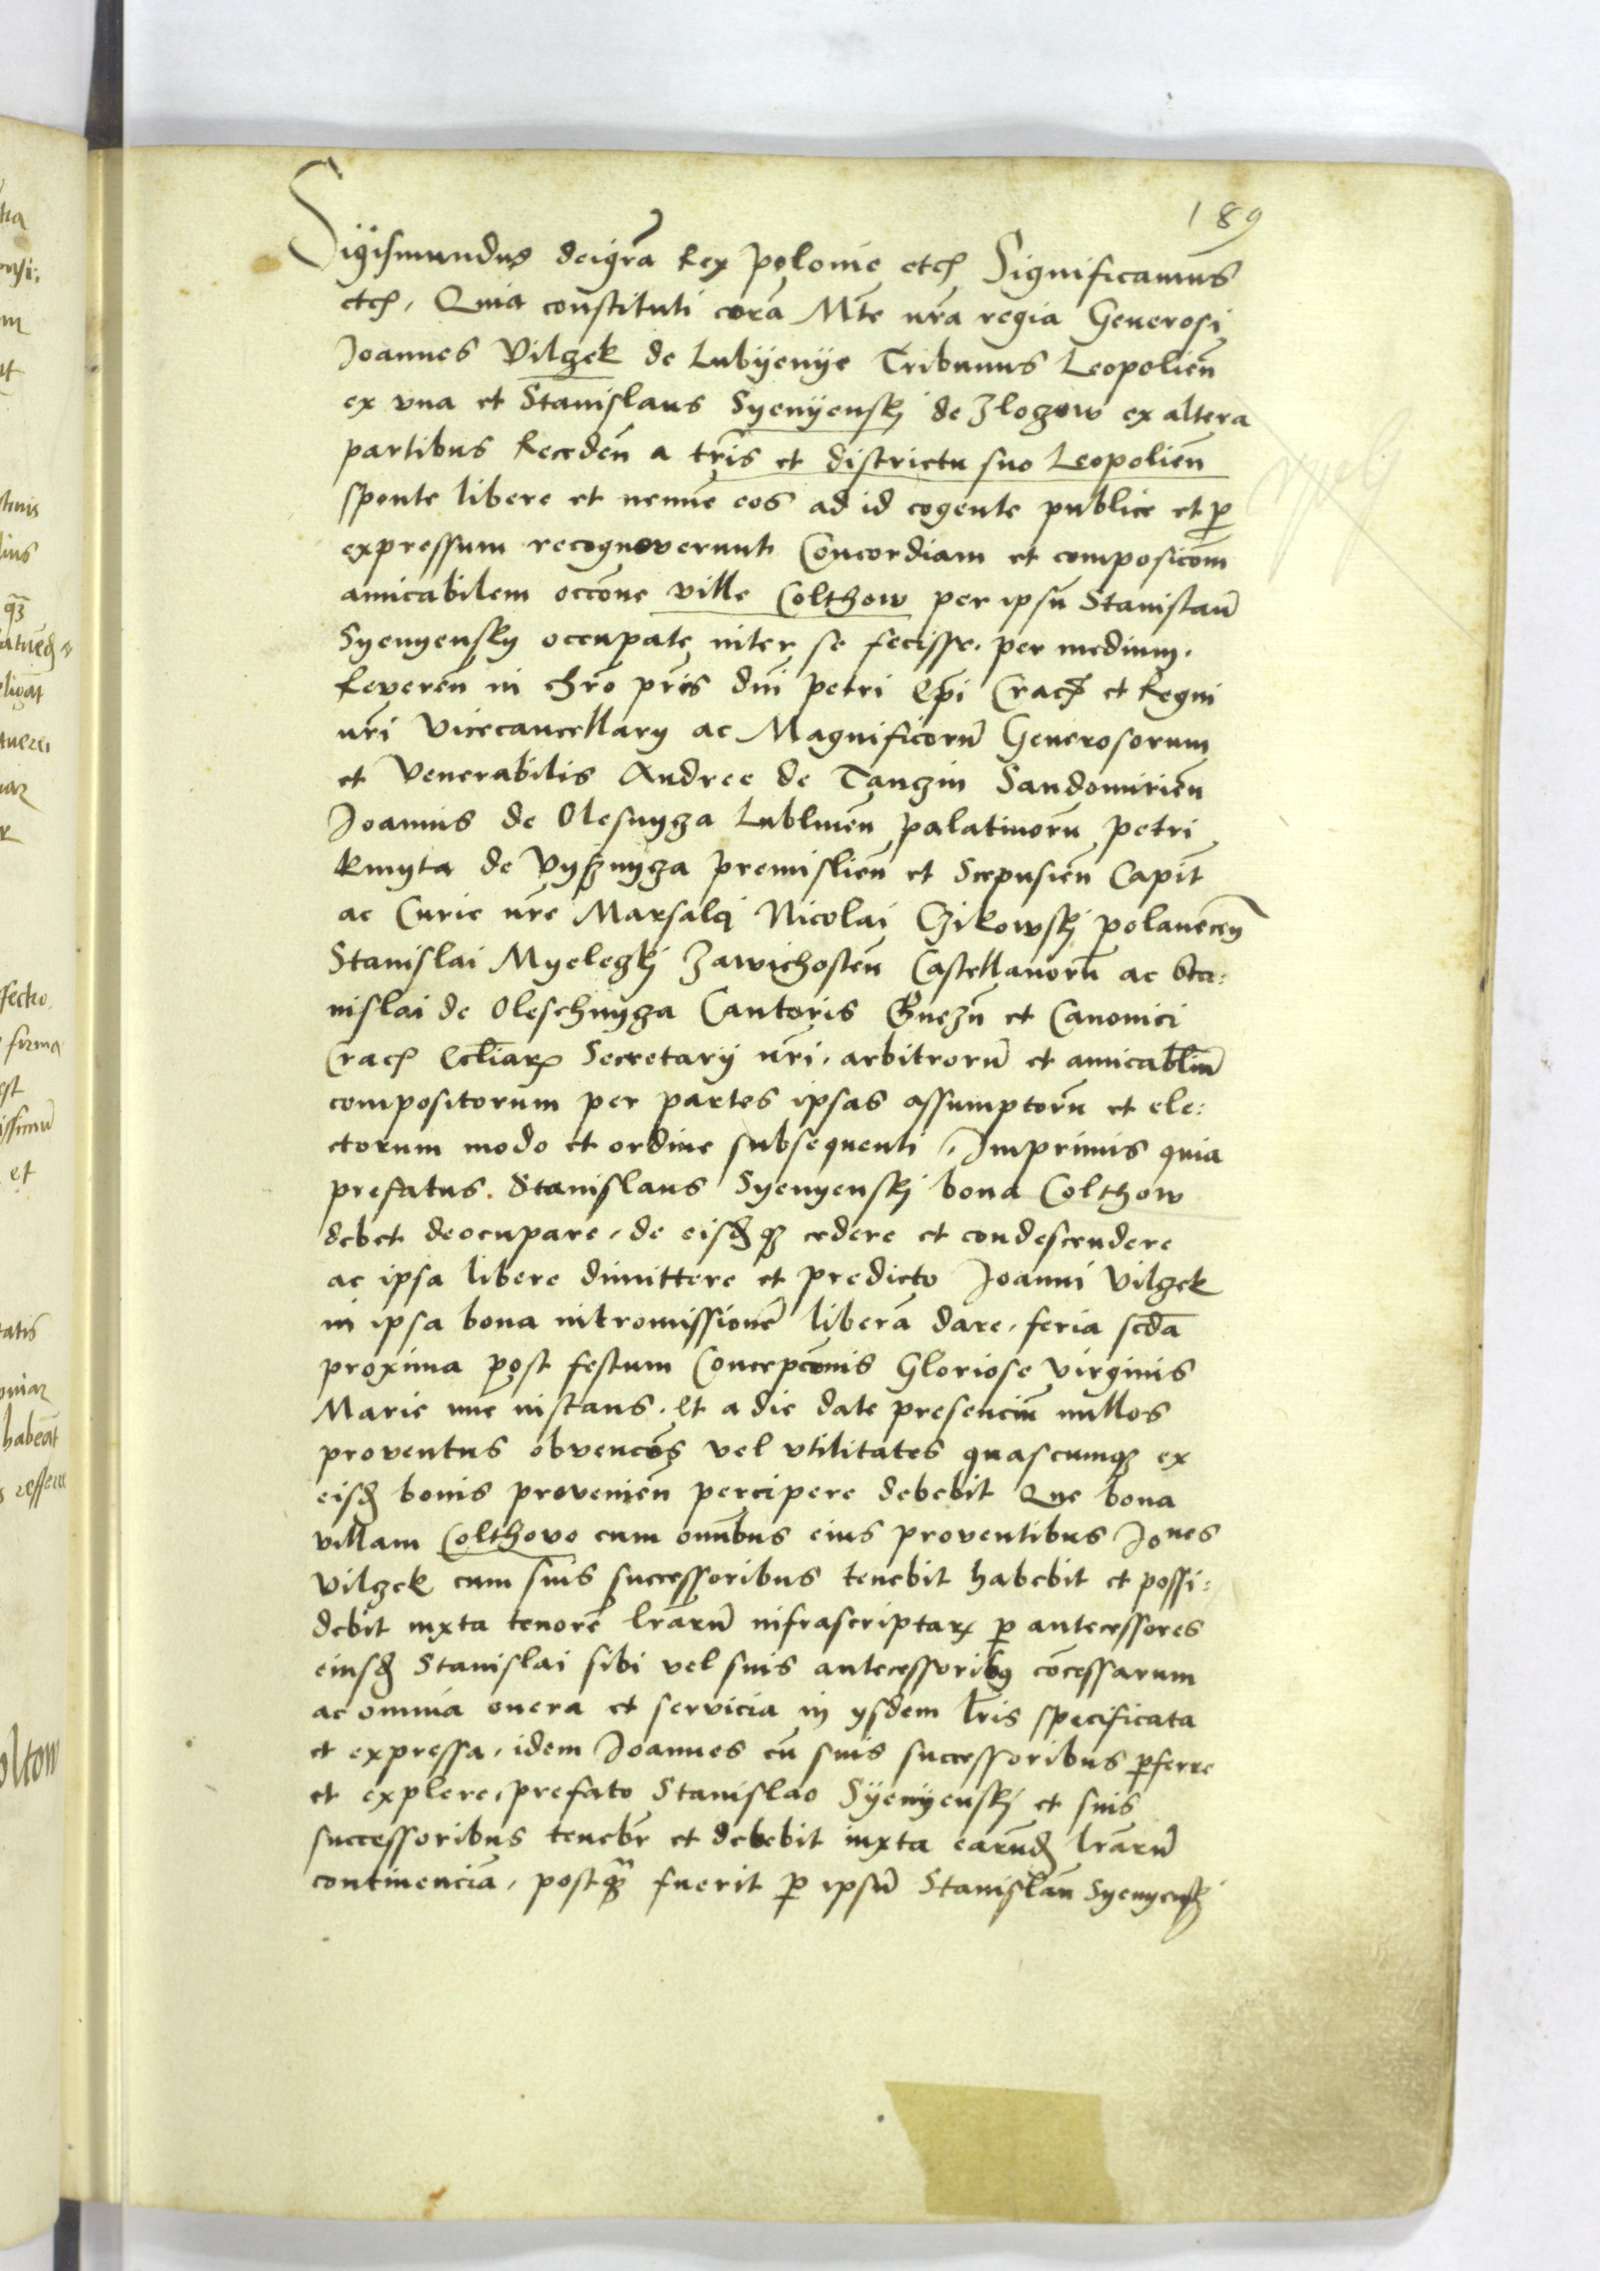 189
Sigismundus deigrā Rex polonie etc̃ Significamus
etc̃, Quia constituti corā Mte nrā regia Generosi
Joannes Vilgek de Lubÿenye Tribunus Leopolien̄
ex vna et Stanislaus Syenÿenskj de Zlogow ex altera
partibus Receden̄ a tr̄is et districtu suo Leopolien̄
sponte libere et nemine eos ad id cogente publice et ꝑ
expressum recognoverunt Concordiam et composicōm
amicabilem occōne ville Colthow per ipsū Stanislaū
Syenyensky occupate inter se fecisse, per medium,
Reveren̄ in chrō pr̄is dn̄i petri Ep̄i Crac̃ et Regni
nr̄i Vicecancellary ac Magnificorū Generosorum
et Venerabilis Andree de Tangin Sandomirien̄
Joannis de Olesnyga Lublinen̄ palatinorū petri
Kmyta de Vysznyga premislien̄ et Scepusien̄ Capit̄
ac Curie nr̄e Marsalci Nicolai Czikowskj polanecen̄
Stanislai Myelegkj Zawichosten̄ Castellanorū ac Sta:
nislai de Oleschnyga Cantoris Gnezn̄ et Canonici
Crac̃ Ecclīaꝝ Secretarÿ nr̄i, arbitrorū et amicabliū
compositorum per partes ipsas assumptorū et ele:
ctorum modo et ordine subsequenti, Imprimis quia
prefatus Stanislaus Syenyenskj bona Colthow
debet deocupare, de eisdꝫ qꝫ cedere et condescendere
ac ipsa libere dimittere et predicto Joanni Vilgek
in ipsa bona intromissionē liberā dare, feria scdā
proxima post festum Concepcōnis Gloriose virginis
Marie nunc instans, Et a die date presenciū nullos
proventus obvencōes vel vtilitates quascumqꝫ ex
eisdꝫ bonis provenien̄ percipere debebit Que bona
villam Colthovo cum omībus eius proventibus Jones
Vilgek cum suis successoribus tenebit habebit et possi:
debit iuxta tenorē lrārū infrascriptaꝝ ꝑ antecessores
eiusdꝫ Stanislai sibi vel suis antecessoribꝫ cōcessarum
ac omnia onera et servicia in ysdem lr̄is specificata
et expressa, idem Joannes cū suis successoribus ꝑferre
et explere, prefato Stanislao Syenÿenskj et suis
successoribus tenebr̄ et debebit iuxta earūdꝫ lrārū
continenciā, postqꝫ̄ fuerit ꝑ ipsū Stanislaū Syenyenskj